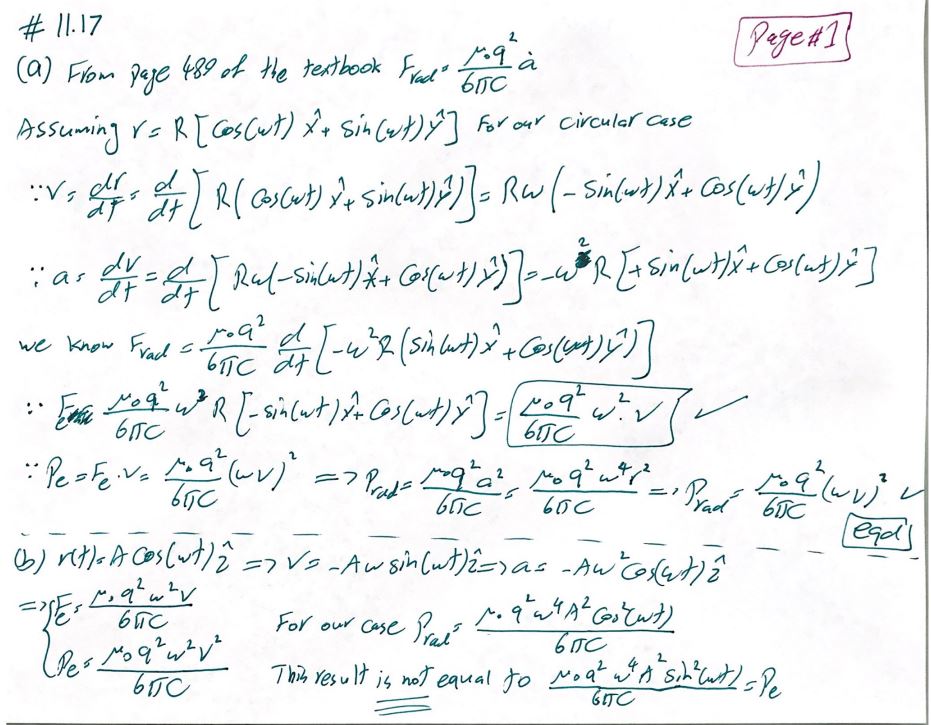 # 11.17
Page #1
(a) From page 489 of the textbook F_rad = μ₀q²/6πC ȧ
Assuming r = R [Cos(ωt) x̂ + sin(ωt) ŷ] For our circular case
∵ V = dr/dt = d/dt [R(Cos(ωt) x̂ + sin(ωt) ŷ)] = Rω (-sin(ωt) x̂ + Cos(ωt) ŷ)
∵ a = dv/dt = d/dt [Rω(-sin(ωt) x̂ + Cos(ωt) ŷ)] = -ω² R [+sin(ωt) x̂ + Cos(ωt) ŷ]
we know F_rad = μ₀q²/6πC d/dt [-ω²R (sin(ωt) x̂ + Cos(ωt) ŷ)]
∵ F_e = μ₀q²/6πC ω³ R [-sin(ωt) x̂ + Cos(ωt) ŷ] = μ₀q²/6πC ω². V ✓
∵ P_e = F_e · v = μ₀q²/6πC (ωV)² => P_rad = μ₀q²a²/6πC = μ₀q²ω⁴r²/6πC => P_rad = μ₀q²/6πC (ωV)² ✓
eqd
(b) r(t) = A Cos(ωt) ẑ => V = -Aω sin(ωt) ẑ => a = -Aω² Cos(ωt) ẑ
=> { F_e = μ₀q²ω²V/6πC
For our case P_rad = μ₀q²ω⁴A²Cos²(ωt)/6πC
P_e = μ₀q²ω²V²/6πC
This result is not equal to μ₀q²ω⁴A²sin²(ωt)/6πC = P_e